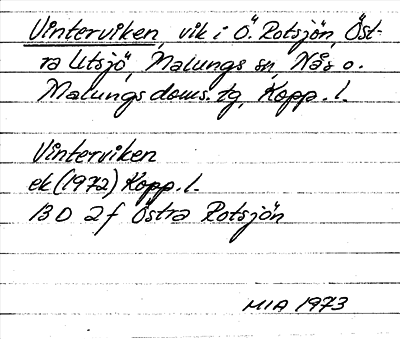 Vinterviken, vik i Ö. Rotsjön, Öst-
ra Utsjö, Malungs sn, Nås o.
Malungs doms. tg, Kopp. l.
Vinterviken
ek (1972) Kopp. l.
13 D 2 f Östra Rotsjön
MIA 1973